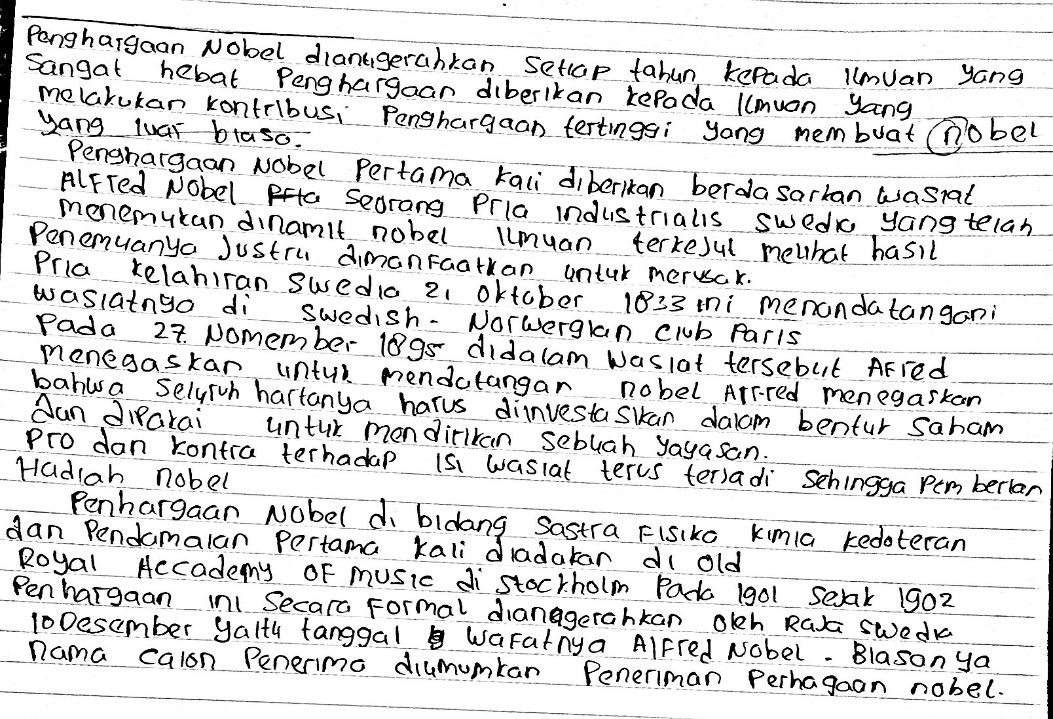 Penghargaan Nobel dianugerahkan Setiap tahun kepada Ilmuan yang
Sangat hebat Penghargaan diberikan kepada Ilmuan yang
melakukan kontribusi Penghargaan tertinggi yang membuat nobel
yang luar biasa.
Penghargaan Nobel Pertama kali diberikan berdasarkan wasiat
Alfred Nobel Seorang Pria industrialis Swedia yang telah
menemukan dinamit nobel Ilmuan terkejut melihat hasil
Penemuanya Justru dimanfaatkan untuk merusak.
Pria kelahiran Swedia 21 Oktober 1833 ini menandatangani
wasiatnya di Swedish - Norwergian Club Paris
Pada 27 Nomember 1895 didalam Wasiat tersebut AFred
menegaskan untuk mendatangan nobel Alfred menegaskan
bahwa Seluruh hartanya harus diinvestasikan dalam bentuk Saham
dan dipakai untuk mendirikan Sebuah yayasan.
Pro dan kontra terhadap isi wasiat terus terjadi Sehingga Pemberian
Hadiah nobel
Penhargaan Nobel di bidang Sastra Fisika kimia kedoteran
dan Pendamaian Pertama kali diadakan di Old
Royal Accademy OF music di Stockholm Pada 1901 Sejak 1902
Penhargaan ini Secara Formal dianaggerahkan Oleh Raja Swedia
10 Desember yaitu tanggal wafatnya AlFred Nobel - Biasanya
nama calon Penerima diumumkan Peneriman Perhagaan nobel.